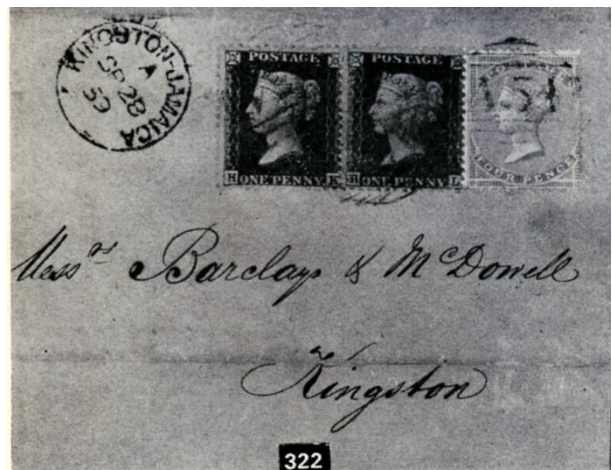 KINGSTON-JAMAICA
A
SP 28
59
POSTAGE
H ONE PENNY K
POSTAGE
H ONE PENNY L
POSTAGE
FOUR PENCE
Mess.rs Barclay & McDowell
Kingston
322